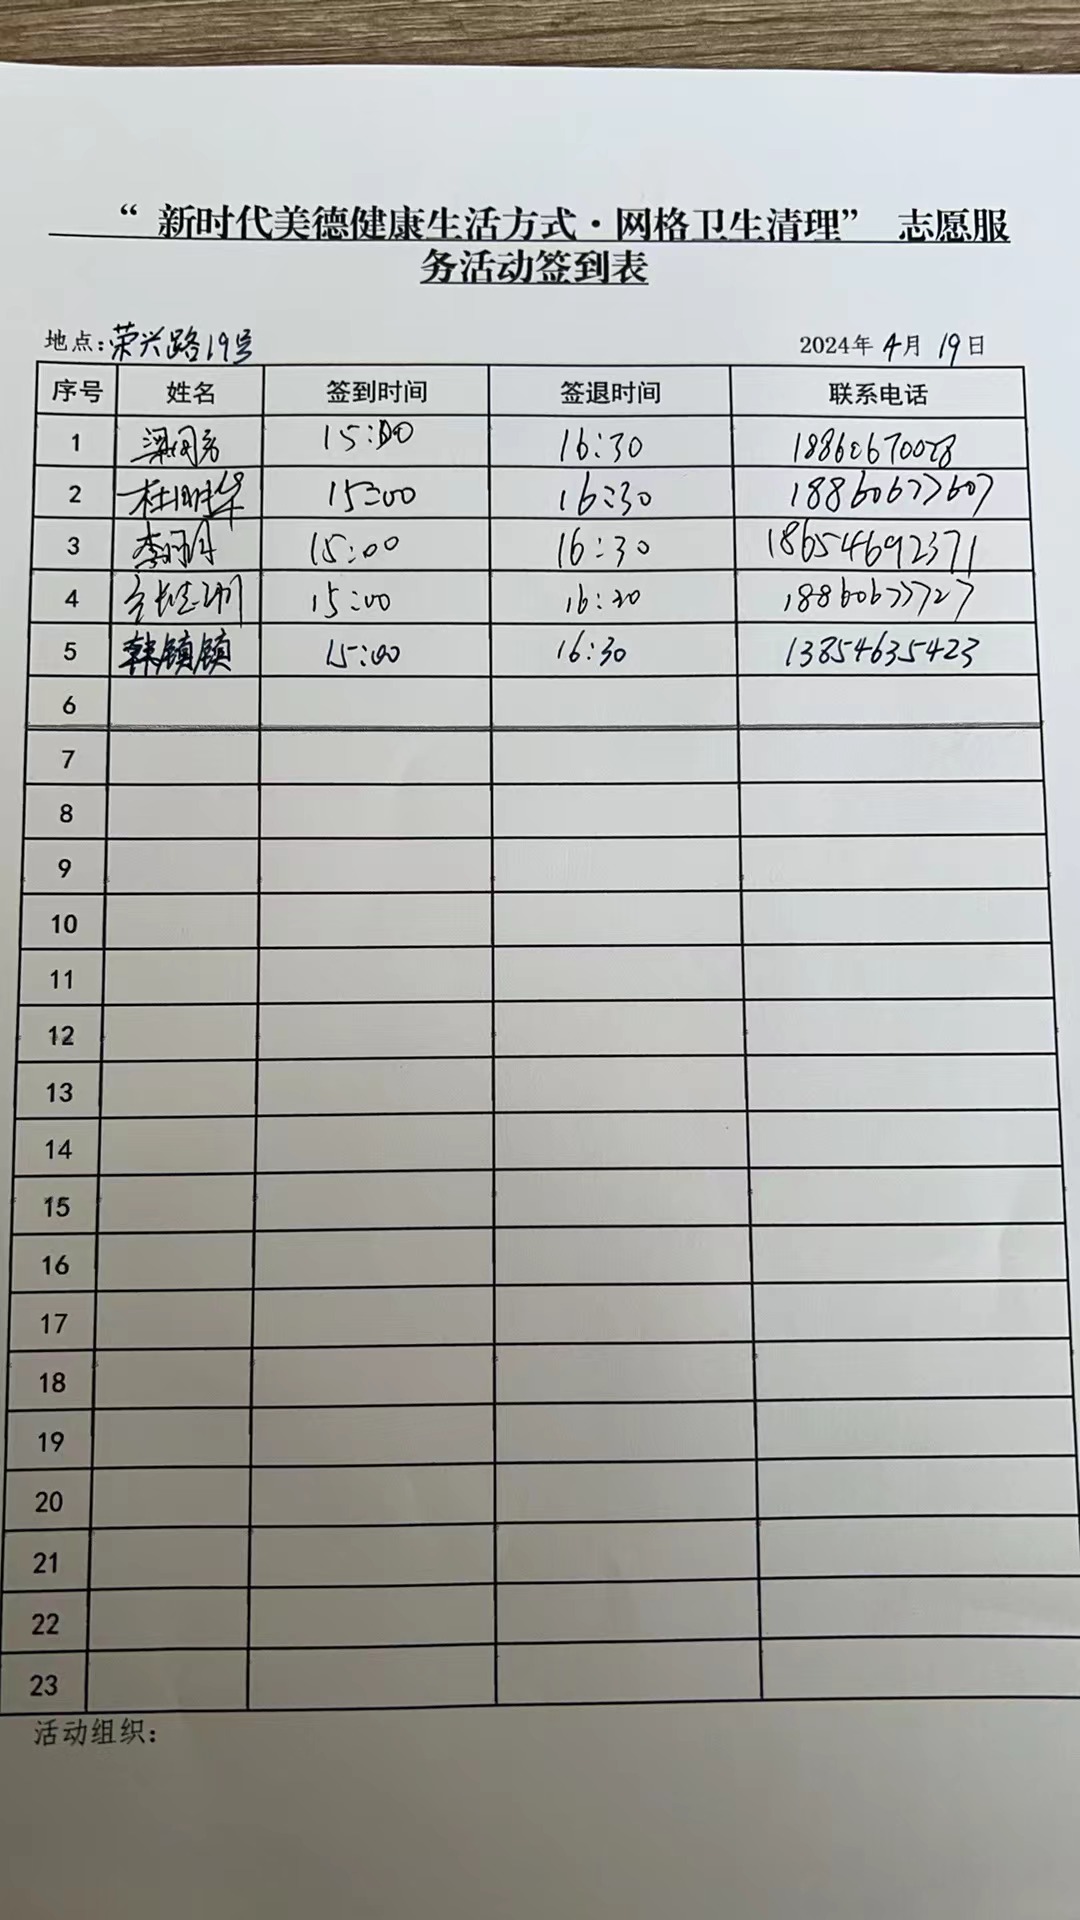 “ 新时代美德健康生活方式·网格卫生清理” 志愿服
务活动签到表
地点：荣兴路19号 2024年 4月 19日
序号 姓名 签到时间 签退时间 联系电话
1 15:00 16:30 18860670028
2 15:00 16:30 18860677607
3 李明月 15:00 16:30 18654692371
4 15:00 16:30 18860677727
5 韩镇镇 15:00 16:30 13854635423
6
7
8
9
10
11
12
13
14
15
16
17
18
19
20
21
22
23
活动组织：